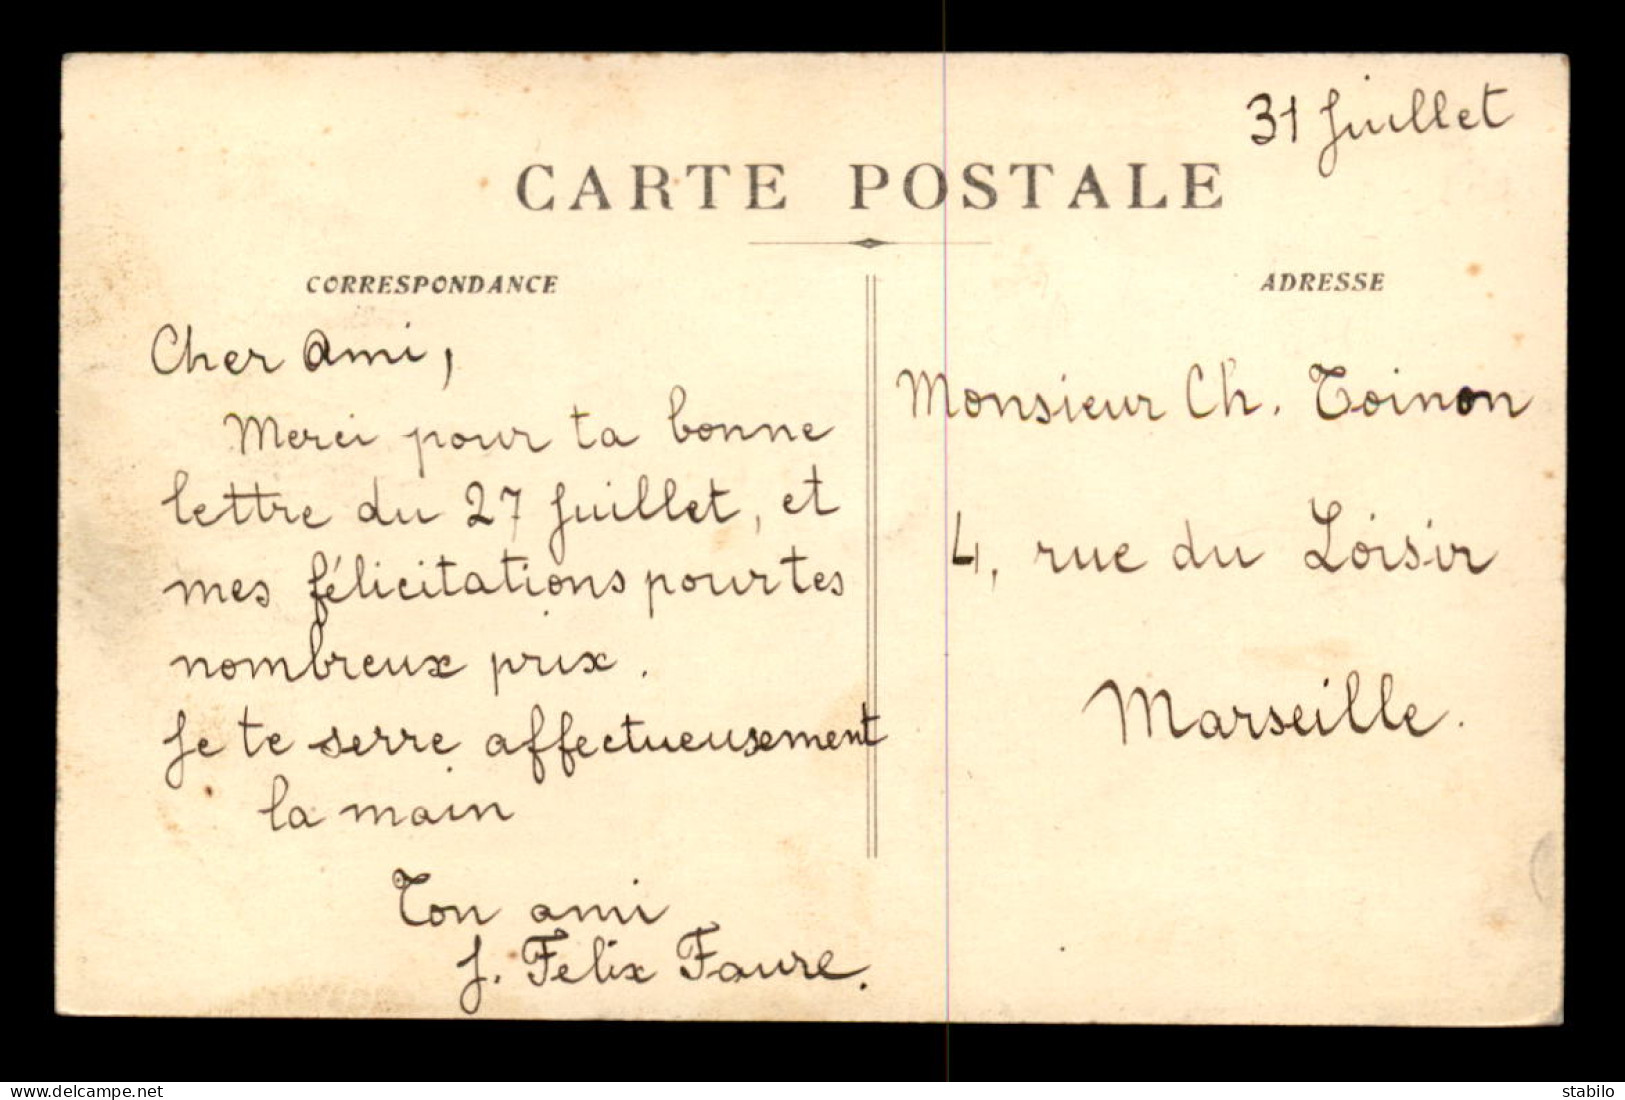 31 Juillet
CARTE POSTALE
CORRESPONDANCE
Cher Ami,
Merci pour ta bonne
lettre du 27 Juillet, et
mes félicitations pour tes
nombreux prix.
Je te serre affectueusement
la main
Ton ami
J. Felix Faure.
ADRESSE
Monsieur Ch. Toinon
4, rue du Loisir
Marseille.
www.delcampe.net
stabilo